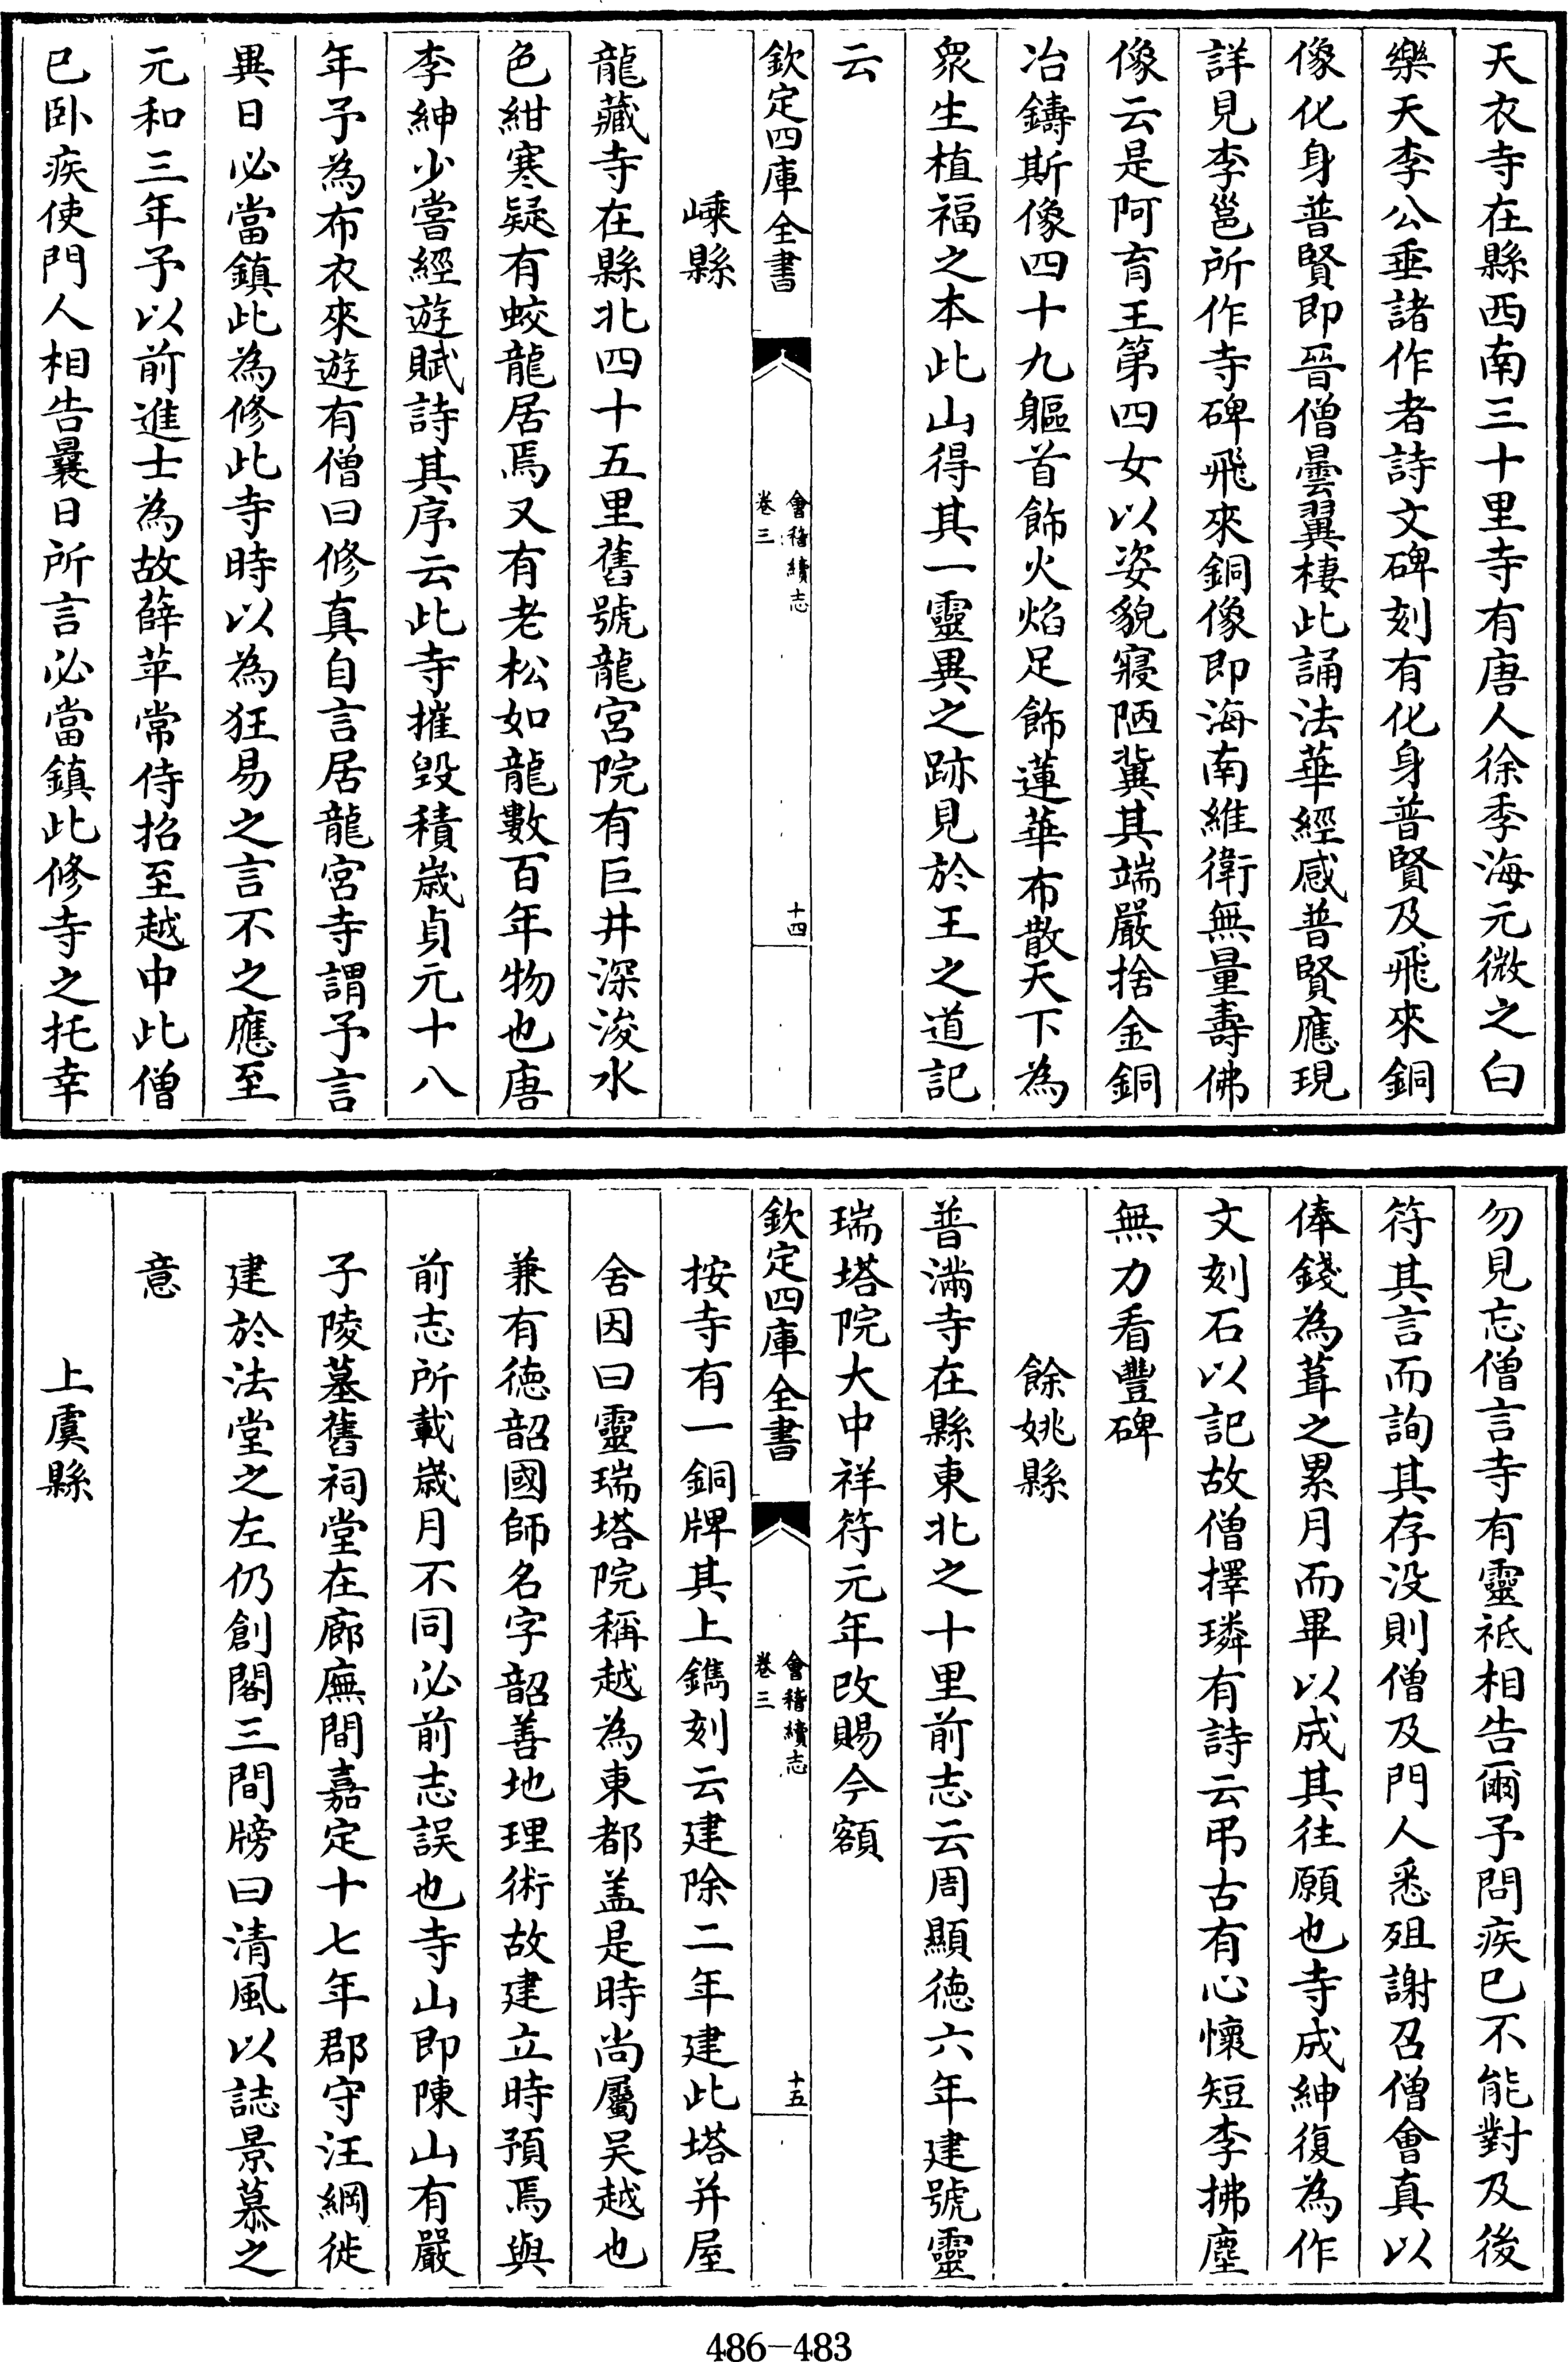 天衣寺在縣西南三十里寺有唐人徐季海元微之白
樂天李公垂諸作者詩文碑刻有化身普賢及飛來銅
像化身普賢即晉僧曇翼棲此誦法華經感普賢應現
詳見李邕所作寺碑飛來銅像即海南維衛無量壽佛
像云是阿育王第四女以姿貌寢陋冀其端嚴捨金銅
冶鑄斯像四十九軀首飾火焰足飾蓮華布散天下為
衆生植福之本此山得其一靈異之跡見於王之道記
云
欽定四庫全書
會稽續志
卷三
十四
嵊縣
龍藏寺在縣北四十五里舊號龍宮院有巨井深浚水
色紺寒疑有蛟龍居焉又有老松如龍數百年物也唐
李紳少嘗經遊賦詩其序云此寺摧毀積歲貞元十八
年予為布衣來遊有僧曰修真自言居龍宮寺謂予言
異日必當鎮此為修此寺時以為狂易之言不之應至
元和三年予以前進士為故薛苹常侍招至越中此僧
已卧疾使門人相告曩日所言必當鎮此修寺之托幸
勿見忘僧言寺有靈祇相告爾予問疾已不能對及後
符其言而詢其存沒則僧及門人悉殂謝召僧會真以
俸錢為葺之累月而畢以成其往願也寺成紳復為作
文刻石以記故僧擇璘有詩云弔古有心懷短李拂塵
無力看豐碑
餘姚縣
普滿寺在縣東北之十里前志云周顯德六年建號靈
瑞塔院大中祥符元年改賜今額
欽定四庫全書
會稽續志
卷三
十五
按寺有一銅牌其上鐫刻云建除二年建此塔并屋
舍因曰靈瑞塔院稱越為東都盖是時尚屬吴越也
兼有德韶國師名字韶善地理術故建立時預焉與
前志所載歲月不同必前志誤也寺山即陳山有嚴
子陵墓舊祠堂在廊廡間嘉定十七年郡守汪綱徙
建於法堂之左仍創閣三間牓曰清風以誌景慕之
意
上虞縣
486-483